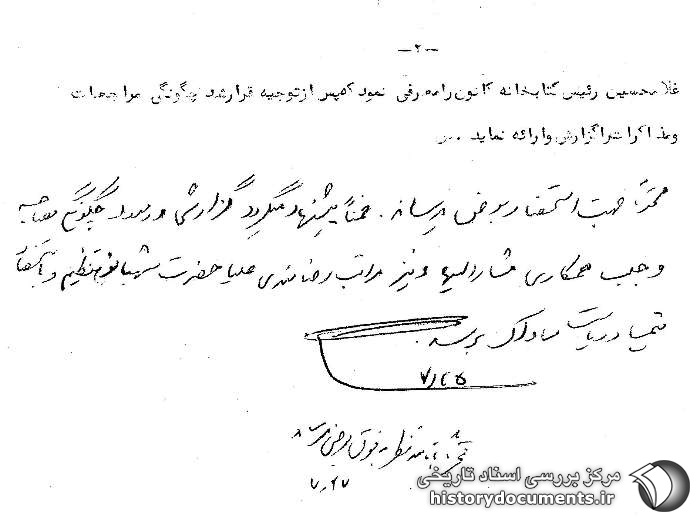 -۲-
غلامحسین رئیس کتابخانه کانون را معرفی نمود که پس از توجیه قرار شد چگونگی مراجعات
و مذاکرات را گزارش و ارائه نماید
مجدداً جهت استحضار بعرض میرساند. ضمناً پیشنهاد میگردد گزارشی در مورد چگونگی مصاحبه
و جلب همکاری مشارالیها و نیز مراتب رضامندی علیاحضرت شهبانو تنظیم و باستحضار
تیمسار ریاست ساواک برسد.
مرکز بررسی اسناد تاریخی
historydocuments.ir